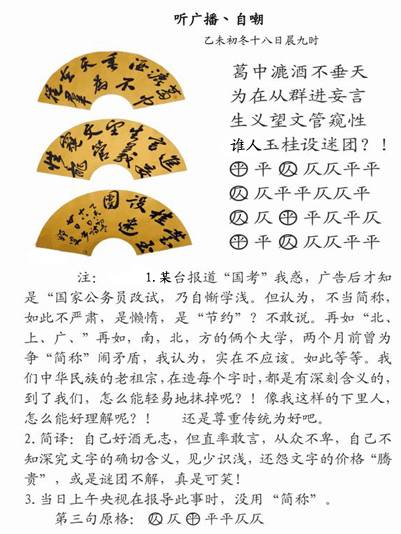 听广播、自嘲
乙未初冬十八日晨九时
葛中漉酒不垂天
为在从群进妄言
生义望文管窥性
谁人玉桂设迷团？！
平平仄仄仄平平
仄仄平平仄仄平
仄仄平平仄平仄
平平仄仄仄平平
注： 1.某台报道“国考”我惑，广告后才知
是“国家公务员改试，乃自惭学浅。但认为，不当简称，
如此不严肃，是懒惰，是“节约”？不敢说。再如“北、
上、广、”再如，南，北，方的俩个大学，两个月前曾为
争“简称”闹矛盾，我认为，实在不应该。如此等等。我
们中华民族的老祖宗，在造每个字时，都是有深刻含义的，
到了我们，怎么能轻易地抹掉呢？！像我这样的下里人，
怎么能好理解呢？！ 还是尊重传统为好吧。
2. 简译：自己好酒无志，但直率敢言，从众不卑，自己不
知深究文字的确切含义，见少识浅，还怨文字的价格“腾
贵”，或是谜团不解，真是可笑！
3. 当日上午央视在报导此事时，没用“简称”。
第三句原格：仄仄平平平仄仄